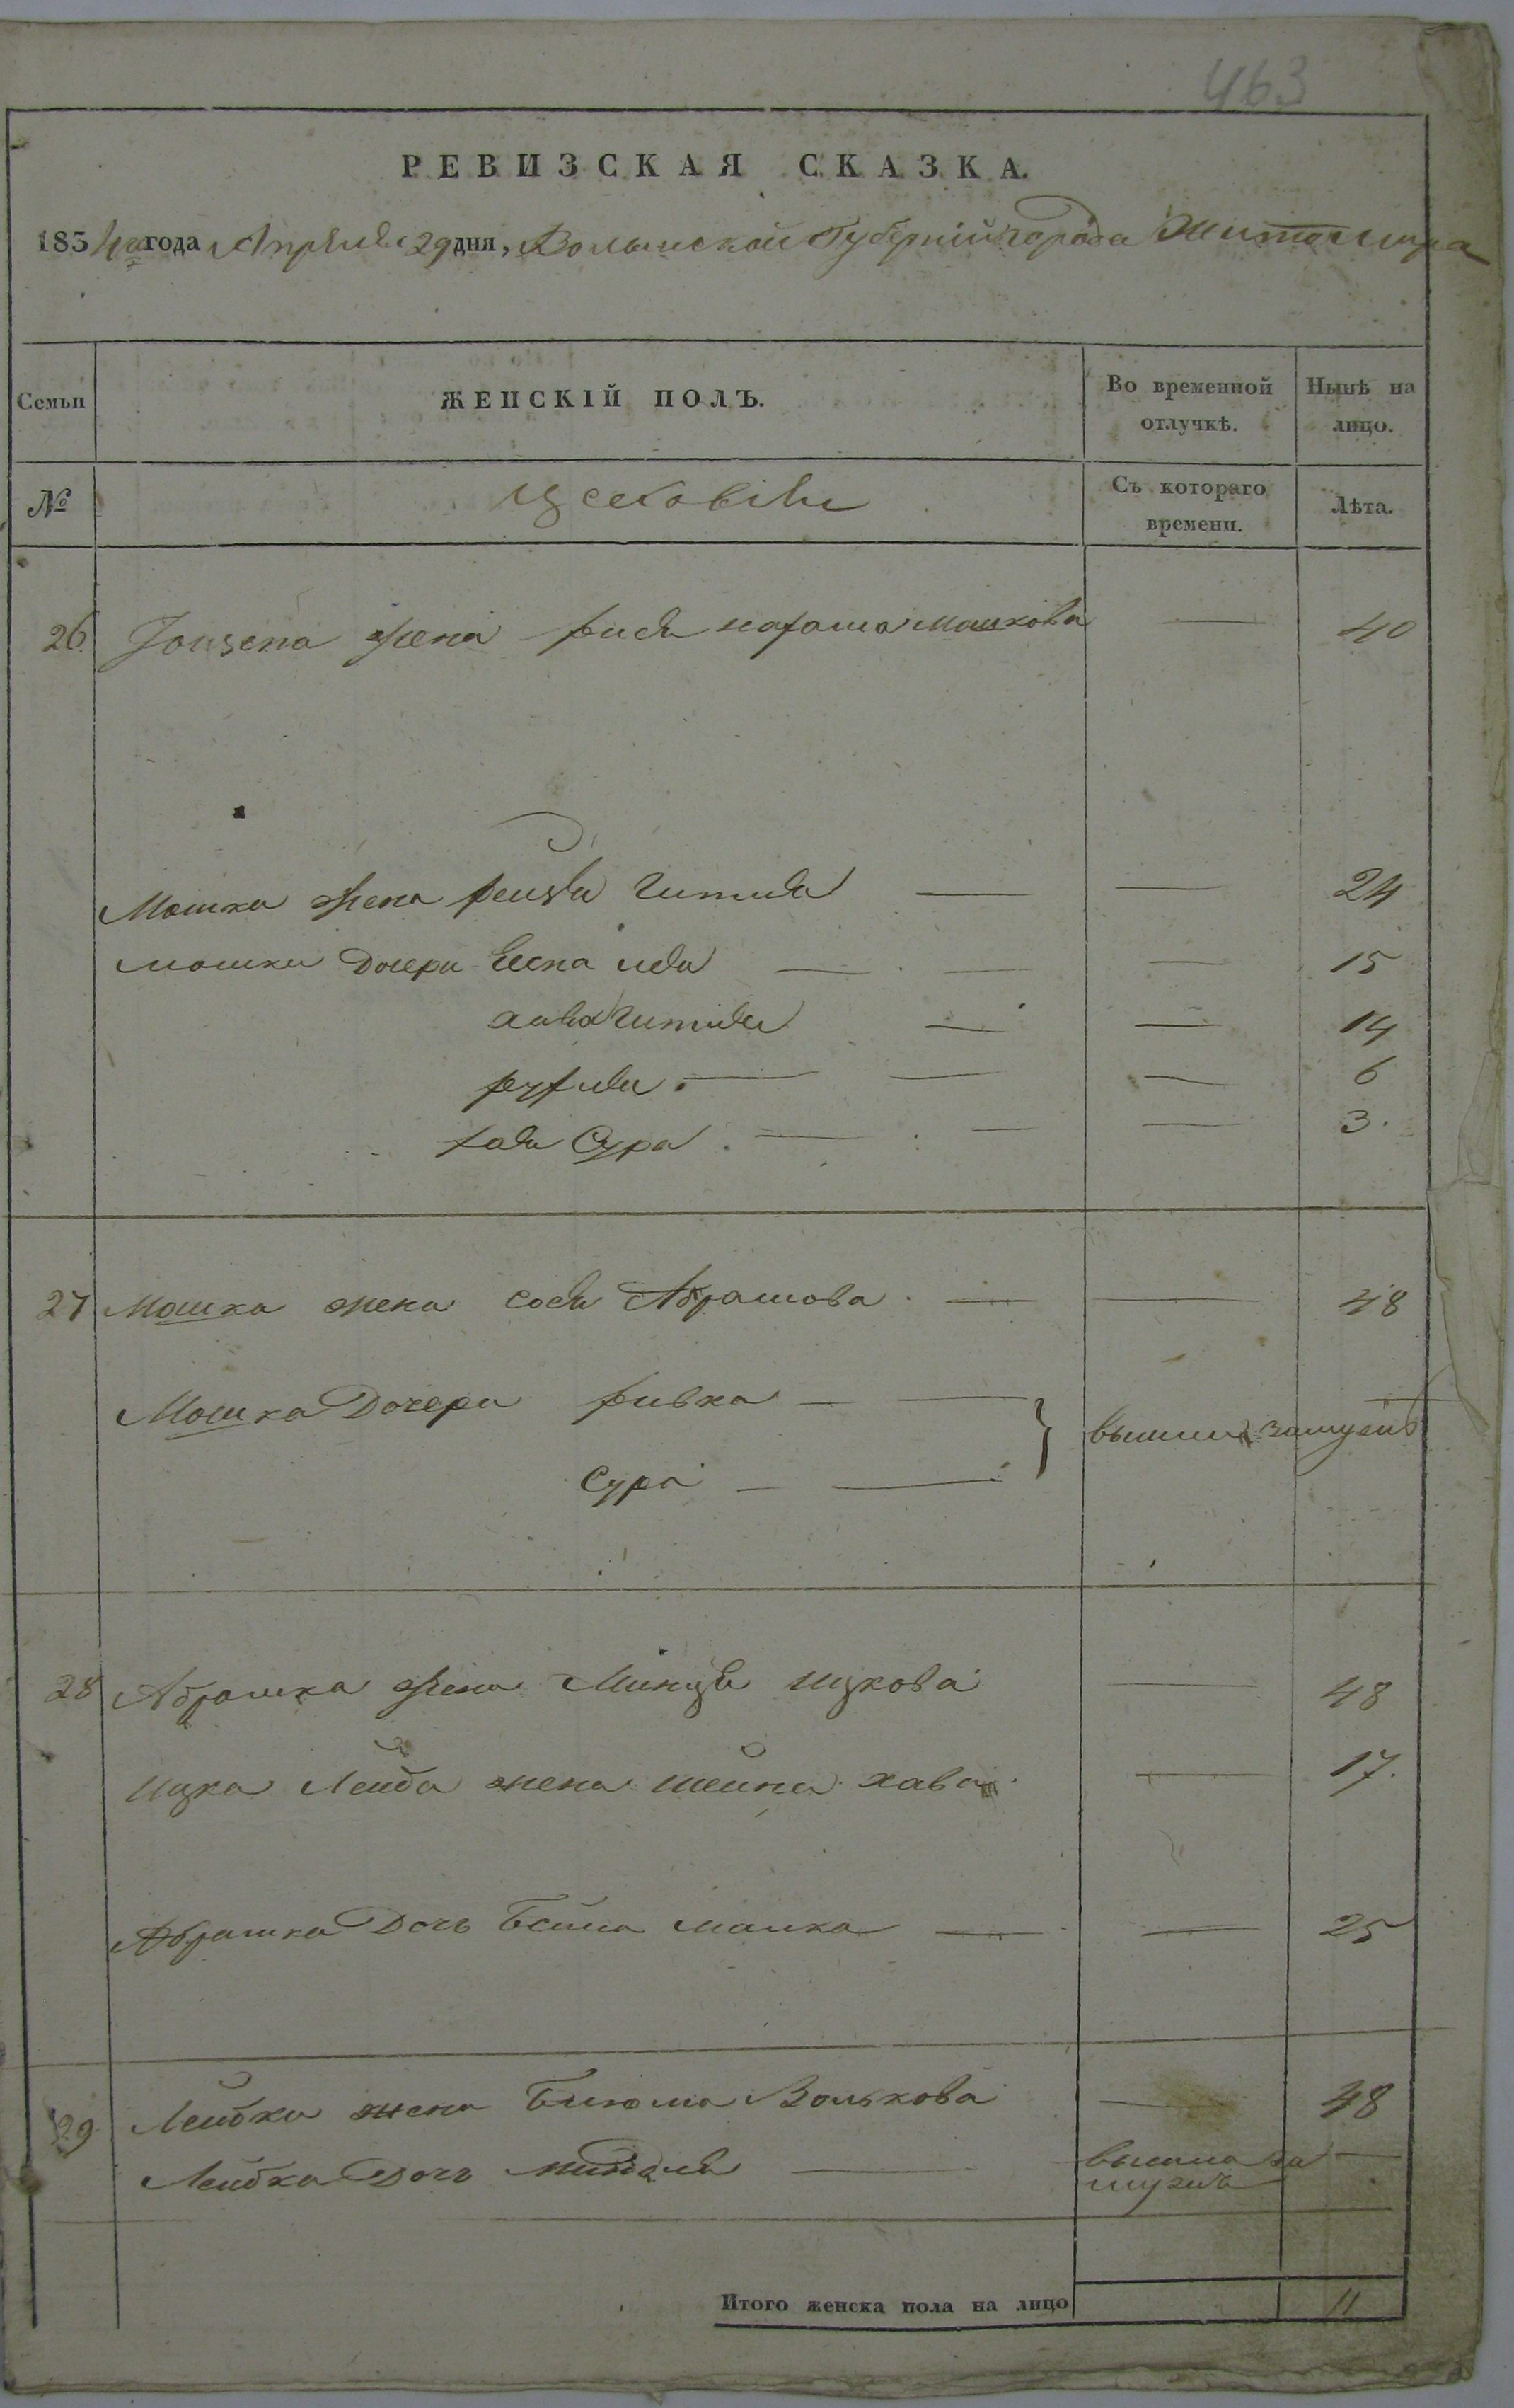 463
РЕВИЗСКАЯ СКАЗКА.
1854го года Апреля 29 дня, Волынской Губернии города Житомира
Семьи ЖЕНСКІЙ ПОЛЪ. Во временной отлучкѣ. Нынѣ на лицо.
№ Съ котораго времени. Лѣта.
26 жена Рися Мошкова — 40
Мошка жена Рейзя Гитля — — 24
Мошки Дочери Есна — — — 15
Хава Гитля — — 14
— — — 6
Сура — — — 3.
27 Мошка жена Сося Абрамова — — 48
Мошка Дочери Ривка — — } вышли замужъ —
Сура — —
28 Абрашка жена Минця Ицкова — 48
Ицка Лейба жена Шейна Хава — 17.
Абрашка Дочь Бейла Малка — — 25
29 Лейбка жена Блюма Волькова — 48
Лейбка Дочь — вышла за мужъ —
Итого женска пола на лицо 11